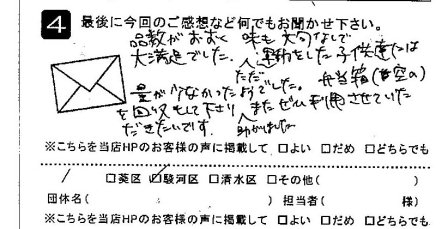 4 最後に今回のご感想など何でもお聞かせ下さい。
品数がおおく 味も大匂なしで
大満足でした。ただ 運動をした子供達には
量が少なかったようでした。弁当箱(黄空の)
を回収もして下さり 助かりました またぜひ利用させていた
だきたいです。
※こちらを当店HPのお客様の声に掲載して □よい □だめ □どちらでも
□葵区 ☑駿河区 □清水区 □その他( )
団体名( ) 担当者( 様)
※こちらを当店HPのお客様の声に掲載して □よい □だめ □どちらでも